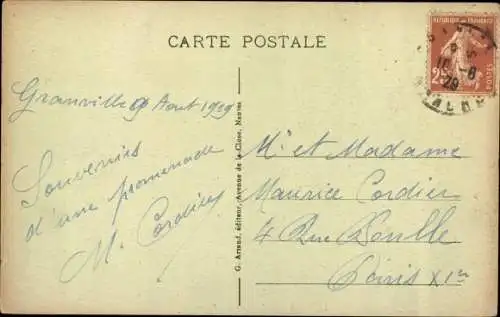 CARTE POSTALE
REPUBLIQUE FRANCAISE
25c
POSTES
10-8
29
Granville 9 Aout 1929
Souvenirs
d'une promenade
M. Cordier
G. Artaud, éditeur, Avenue de la Close, Nantes
Mr et Madame
Maurice Cordier
4 Rue
Paris XIer